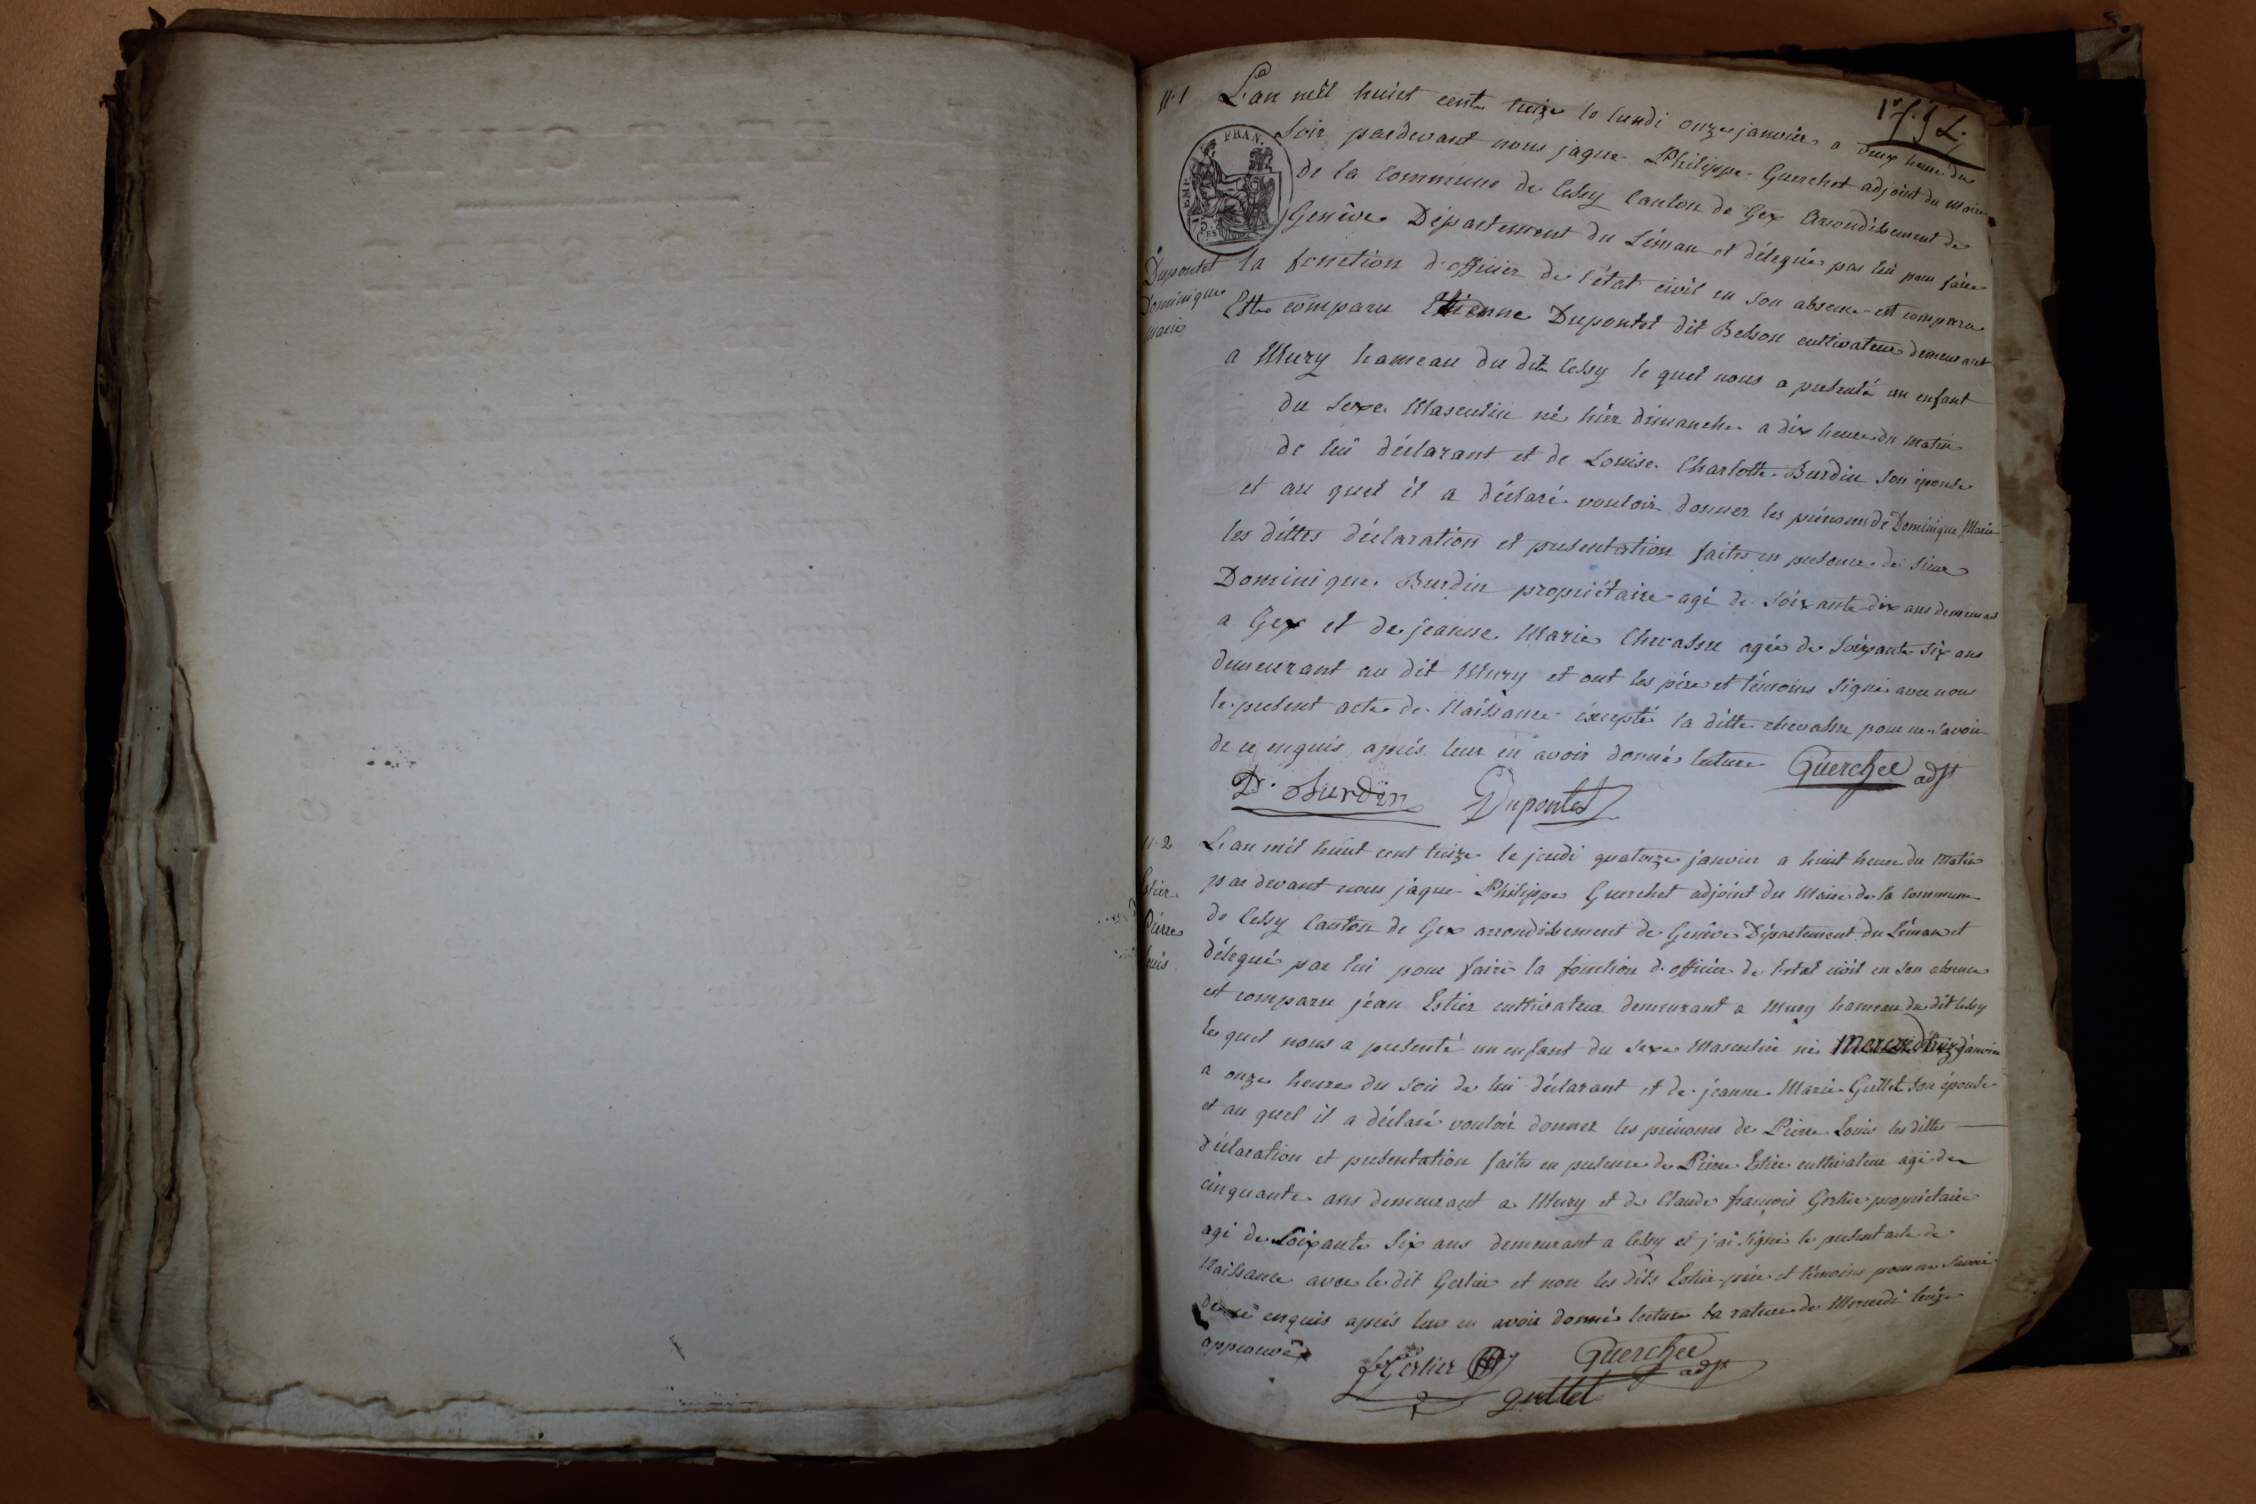 N.1
L'an mil huict cent treize le lundi onze janvier a deux heure du
soir pardevant nous jaque Philippe Guerchet adjoint du maire
de la Commune de Cessy Canton de Gex Arrondissement de
Genêve Département du Léman et délégué par lui pour faire
la fonction d'officier de l'état civil en son absence est comparu
FRAN.
Dupontet
Dominique
Marie
Est comparu Etienne Dupontet dit Belson cultivateur demeurant
a Mury hameau du dit Cessy le quel nous a presenté un enfant
du sexe Masculin né hier dimanche a dix heure du matin
de lui déclarant et de Louise Charlotte Burdin son épouse
et au quel il a déclaré vouloir donner les prénoms de Dominique Marie
les dittes déclaration et presentation faites en presence de sieur
Dominique Burdin propriétaire agé de soixante dix ans demeurant
a Gex et de jeanne Marie Chevassu agée de soixante six ans
demeurant au dit Mury et ont les pére et témoins signé avec nous
le present acte de Naissance éxcepté la ditte chevassu pour ne savoir
de ce enquis apués leur en avoir donnés lecture Guerchet adjt
D. Burdin Dupontet
N. 2
L'an mil huict cent treize le jeudi quatorze janvier a huit heure du Matin
par devant nous jaque Philippe Guerchet adjoint du Maire de la Commune
de Cessy Canton de Gex arrondissement de Genêve Département du Léman et
délegué par lui pour faire la fonction d'officier de l'état civil en son absence
Pierre
Louis
est comparu jean Estier cultivateur demeurant a Mury hameau du dit Cessy
le quel nous a presenté un enfant du sexe Masculin né Mercredi treize janvier
a onze heures du soir de lui déclarant et de jeanne Marie Guillet son épouse
et au quel il a déclaré vouloir donner les prénoms de Pierre Louis les dittes
déclaration et presentation faites en presence de Pierre Estier cultivateur agé de
cinquante ans demeurant a Mury et de Claude françois Gerlier propriétaire
agé de soixante six ans demeurant a Cessy et j'ai signé le present acte de
Naissance avec le dit Gerlier et non les dits Estier pére et témoins pour ne savoir
de ce enquis apués leur en avoir donné lecture la rature de Mercredi treize
approuvé
Gerlier Guerchet adjt
guillet